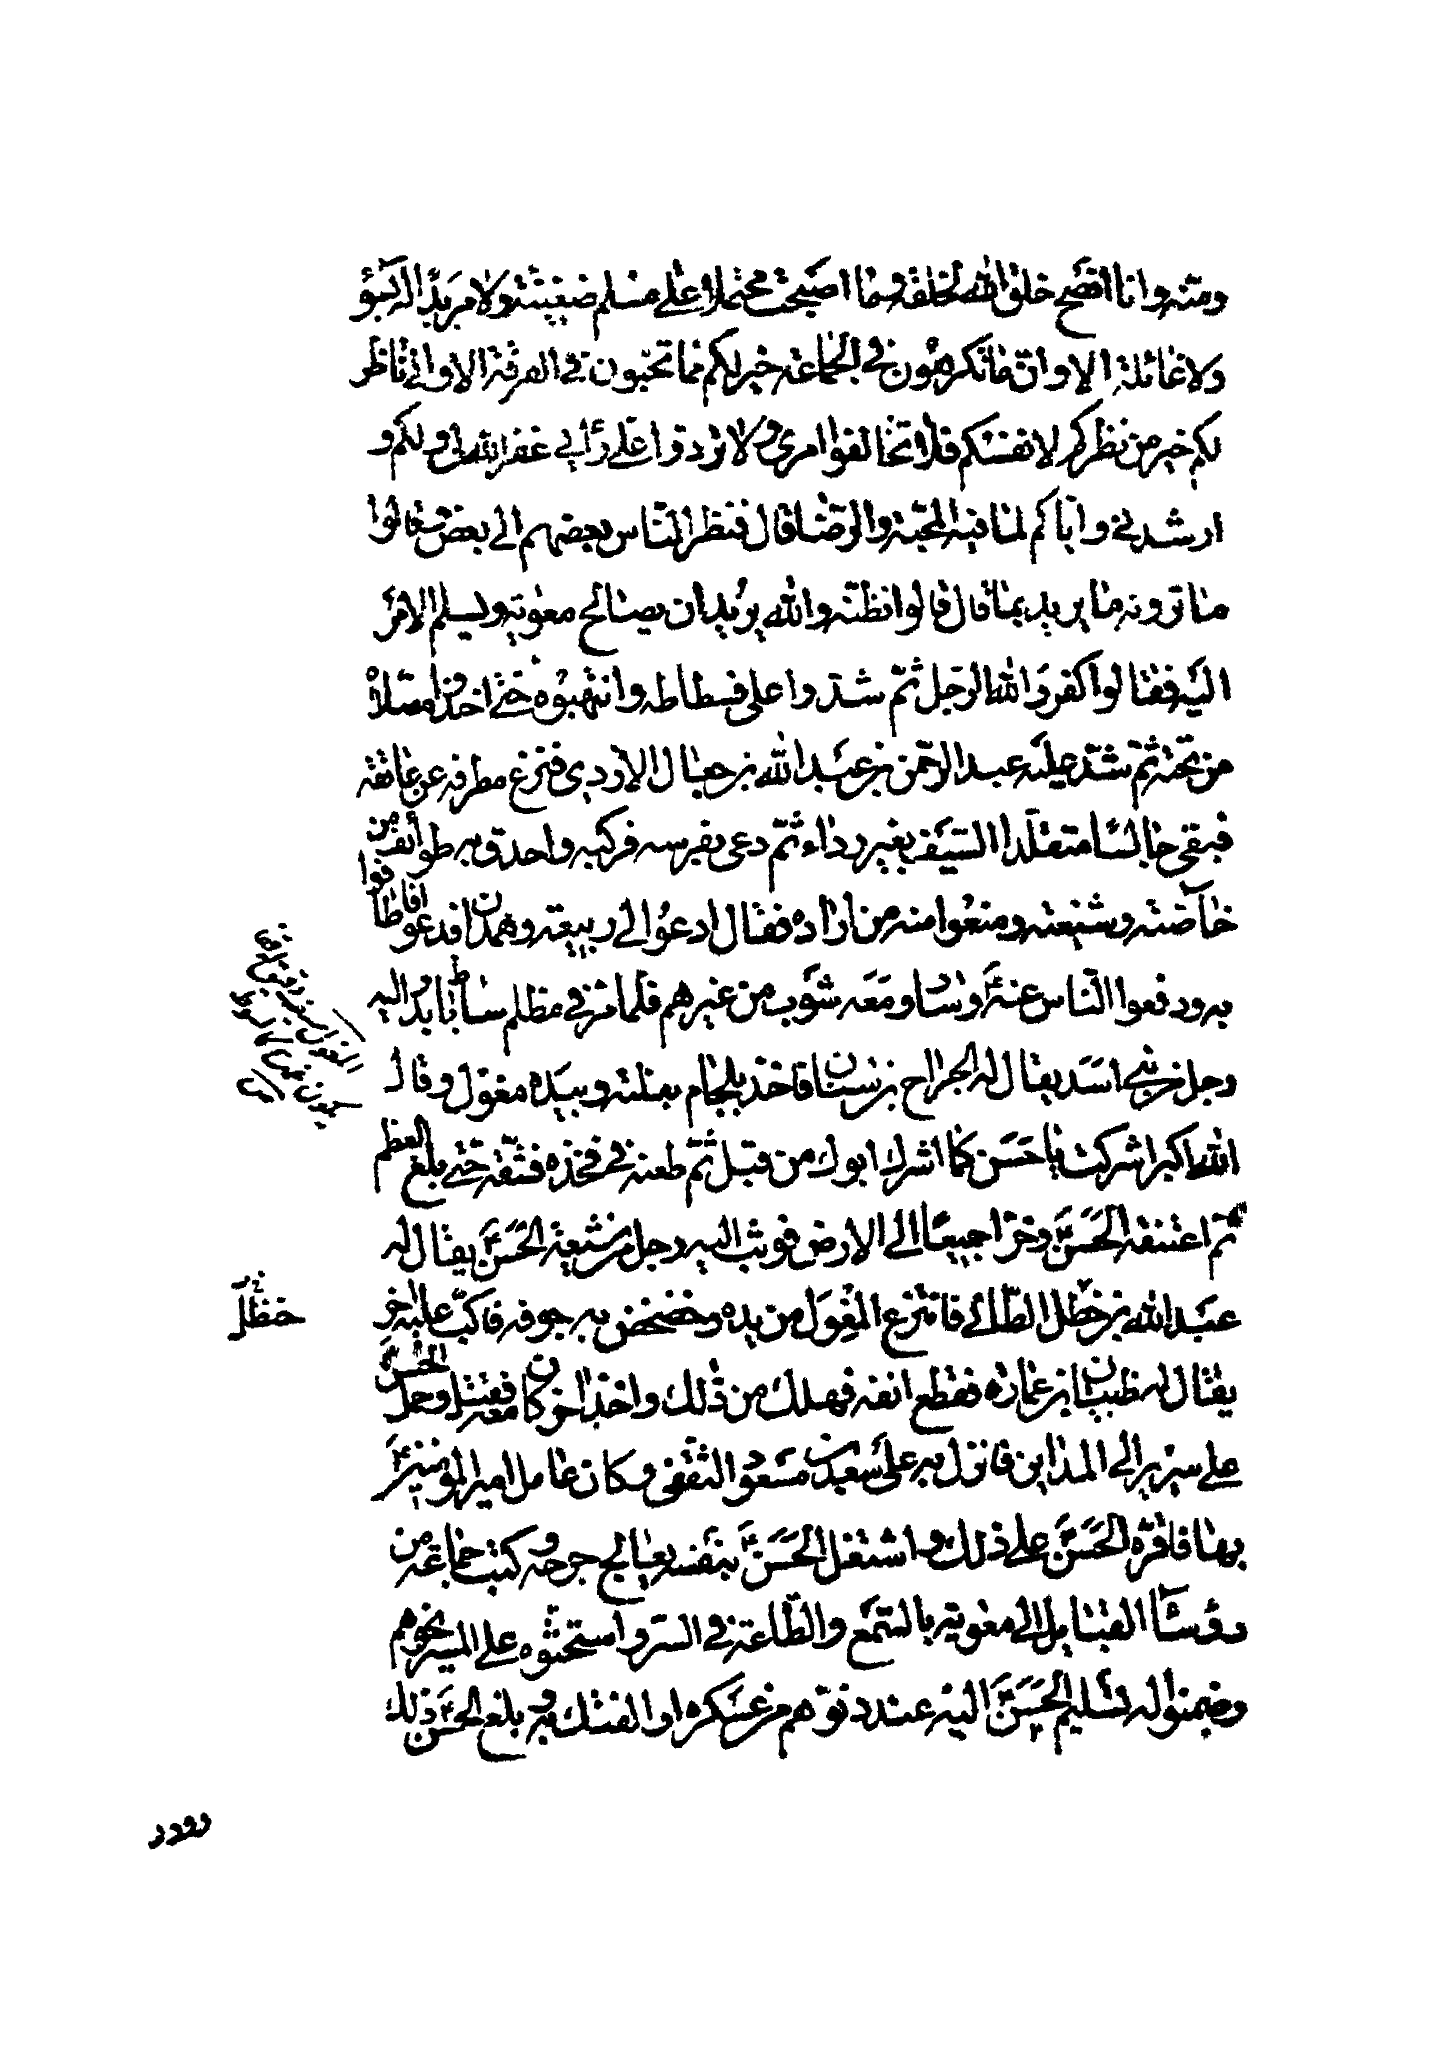 ومنه وانا انصح خلق الله لخلقه وما اصبحت محتملا على مسلم ضغينة ولا مريد اله بسو
ولا غائلة الا وان ما تكرهون في الجماعة خير لكم مما تحبون في الفرقة الا واني ناظر
لكم خير من نظركم لانفسكم فلا تخالفوا امري ولا تردوا على رأيي غفر الله لي ولكم و
ارشدني واياكم لما فيه المحبة والرضا قال فنظر الناس بعضهم الى بعض وقالوا
ما ترونه ما يريد بما قال قالوا نظنه والله يريد ان يصالح معوية ويسلم الامر
اليه فقالوا كفر والله الرجل ثم شدوا على فسطاطه وانتهبوه حتى اخذوا مصلاه
من تحته ثم شد عليه عبد الرحمن بن عبد الله بن جعال الازدي فنزع مطرفه عن عاتقه
فبقى جالسا متقلدا السيف بغير رداء ثم دعى بفرسه فركبه واحدق به طوائف من
خاصته وشيعته ومنعوا منه من اراده فقال ادعوا لي ربيعة وهمدان فدعوا فاطافوا
به ودفعوا الناس عنه ع وسار ومعه شوب من غيرهم فلما مر في مظلم ساباط بدر اليه
رجل من بني اسد يقال له الجراح بن سنان فاخذ بلجام بغلته وبيده مغول وقال
الله اكبر اشركت يا حسن كما اشرك ابوك من قبل ثم طعنه في فخذه فشقه حتى بلغ العظم
ثم اعتنقه الحسن ع وخرا جميعا الى الارض فوثب اليه رجل من شيعة الحسن ع يقال له
عبد الله بن خطل الطائي فانتزع المغول من يده وخضخض به جوفه فاكب عليه اخر
خنظل
يقال له ظبيان بن عماره فقطع انفه فهلك من ذلك واخذ اخر كان معه فقتل وحمل الحسن ع
على سرير الى المداين فانزل به على سعد بن مسعود الثقفي وكان عامل امير المومنين ع
بها فاقره الحسن ع على ذلك واشتغل الحسن ع بنفسه يعالج جرحه وكتب جماعة من
رؤسآ القبايل الى معوية بالسمع والطاعة في السر واستحثوه على المسير نحوهم
وضمنوا له تسليم الحسن ع اليه عند دنوهم من عسكره او الفتك به وبلغ الحسن ع ذلك